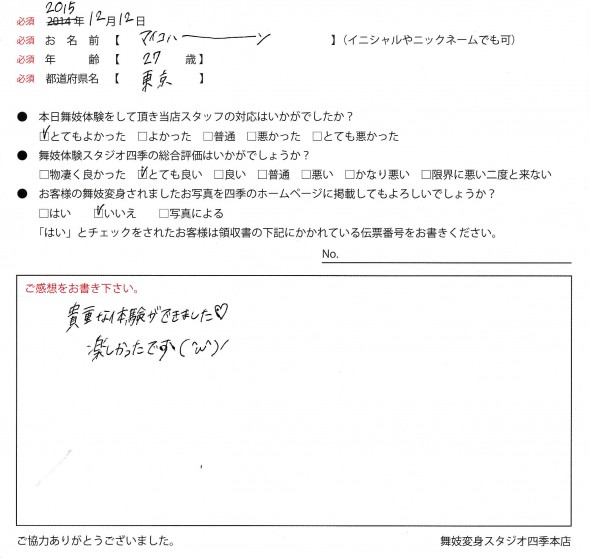 2015
必須 2014年 12月12日
必須 お名前【 マイコハーン 】(イニシャルやニックネームでも可)
必須 年齢【 27 歳】
必須 都道府県名【 東京 】
● 本日舞妓体験をして頂き当店スタッフの対応はいかがでしたか?
☑とてもよかった □よかった □普通 □悪かった □とても悪かった
● 舞妓体験スタジオ四季の総合評価はいかがでしょうか?
□物凄く良かった ☑とても良い □良い □普通 □悪い □かなり悪い □限界に悪い二度と来ない
● お客様の舞妓変身されましたお写真を四季のホームページに掲載してもよろしいでしょうか?
□はい ☑いいえ □写真による
「はい」とチェックをされたお客様は領収書の下記にかかれている伝票番号をお書きください。
No.
ご感想をお書き下さい。
貴重な体験ができました♡
楽しかったです(^ω^)/
ご協力ありがとうございました。 舞妓変身スタジオ四季本店